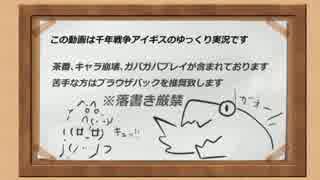 この動画は千年戦争アイギスのゆっくり実況です
茶番、キャラ崩壊、ガバガバプレイが含まれております
苦手な方はブラウザバックを推奨致します
※落書き厳禁
ガオー
キュッ!!